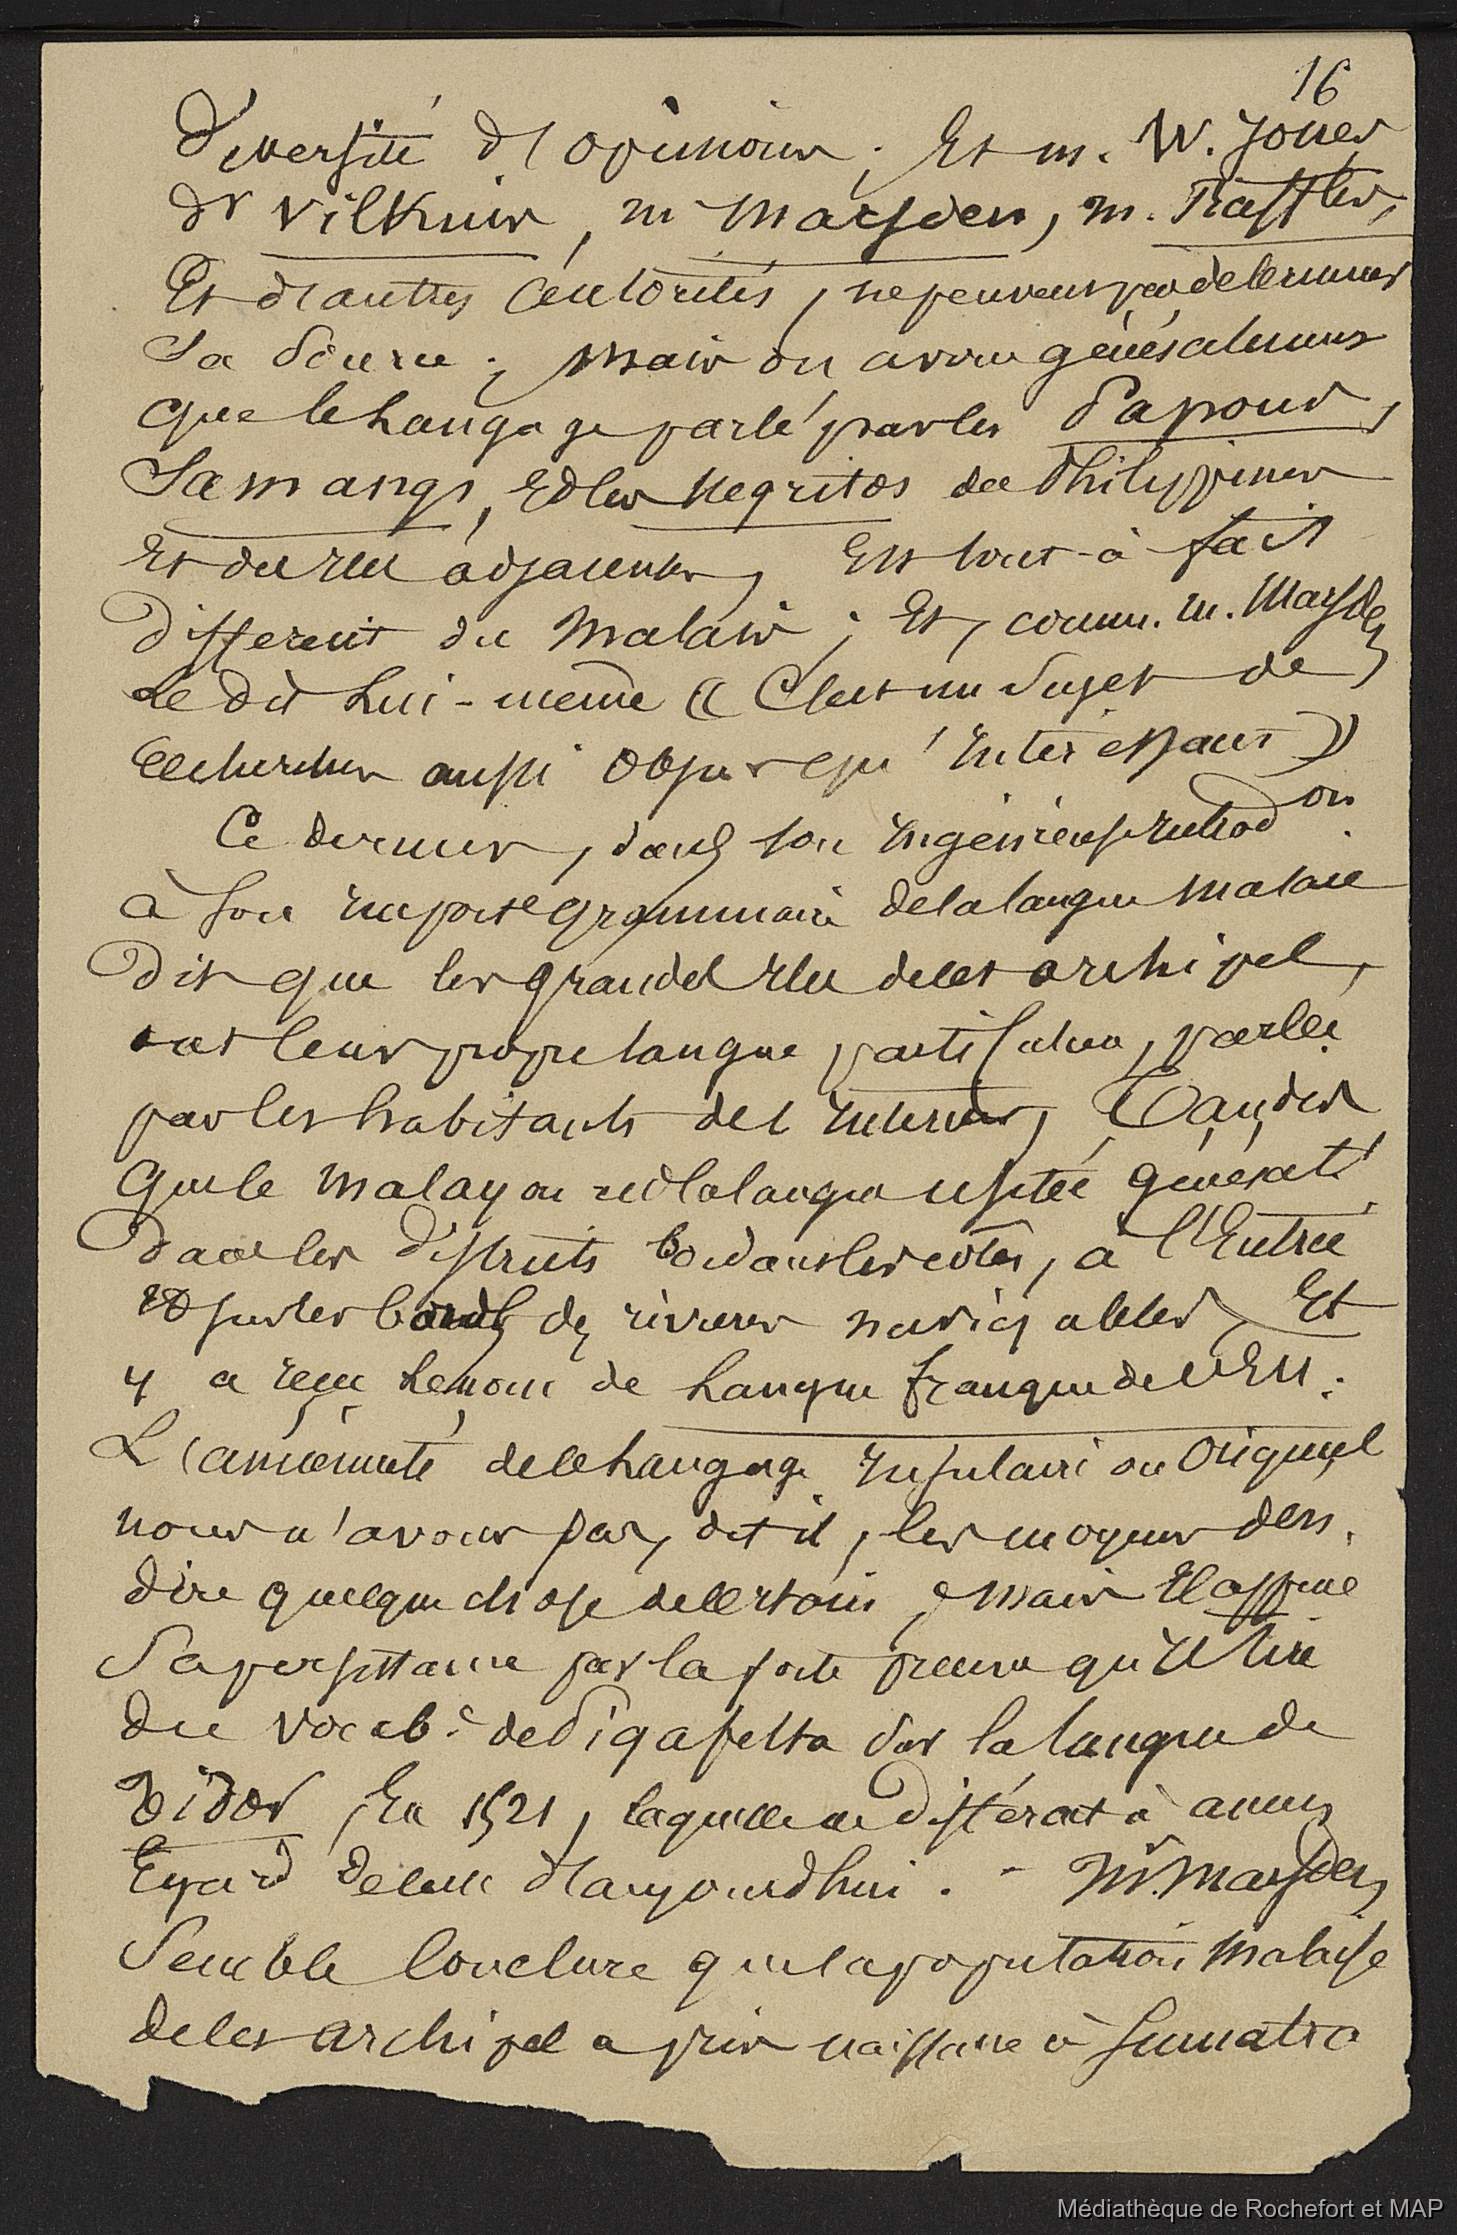 16
diversité d'opinions ; Et m. W. Jones
dr Vilkins, m Marsden, m. Raffles,
Et d'autres autorités, ne peuvent pas déterminer
Sa Source ; Mais on avoue généralement
que le Langage parlé par les Papous,
Samangs, Et les Negritos des Philippines
Et des Iles adjacentes, Est tout-à fait
différent du Malais ; Et, comme m. Marsden
Le dit Lui-même (( C'est un Sujet de
Recherches aussi obscur qu'Intéressant ))
Ce dernier, dans son Ingénieuse Introdon
à son Grammaire de la langue Malaie
Dit que les grandes Iles de cet archipel,
ont leur propre langue particulière, parlée
par les habitants de l'Intérieur, Tandis
que le Malayou est la langue usitée généralt
dans les districts bordant les côtes, à l'Entrée
Et sur les bords des rivières navigables, Et
y a reçu Le nom de Langue franque de l'Est :
L'ancienneté de ce Langage Insulaire ou Originel
nous n'avons pas, dit il, les moyens d'en
dire quelque chose de certain, Mais Il appuie
Sa persistance par la forte preuve qu'Il tire
du vocabre de Pigafetta Sur la langue de
Tidor, En 1521, laquelle ne différait à aucun
Egard de celle d'aujourd'hui. - Mr. Marsden
Semble Conclure que la population Malaise
de cet archipel a pris naissance à Sumatra
Médiathèque de Rochefort et MAP